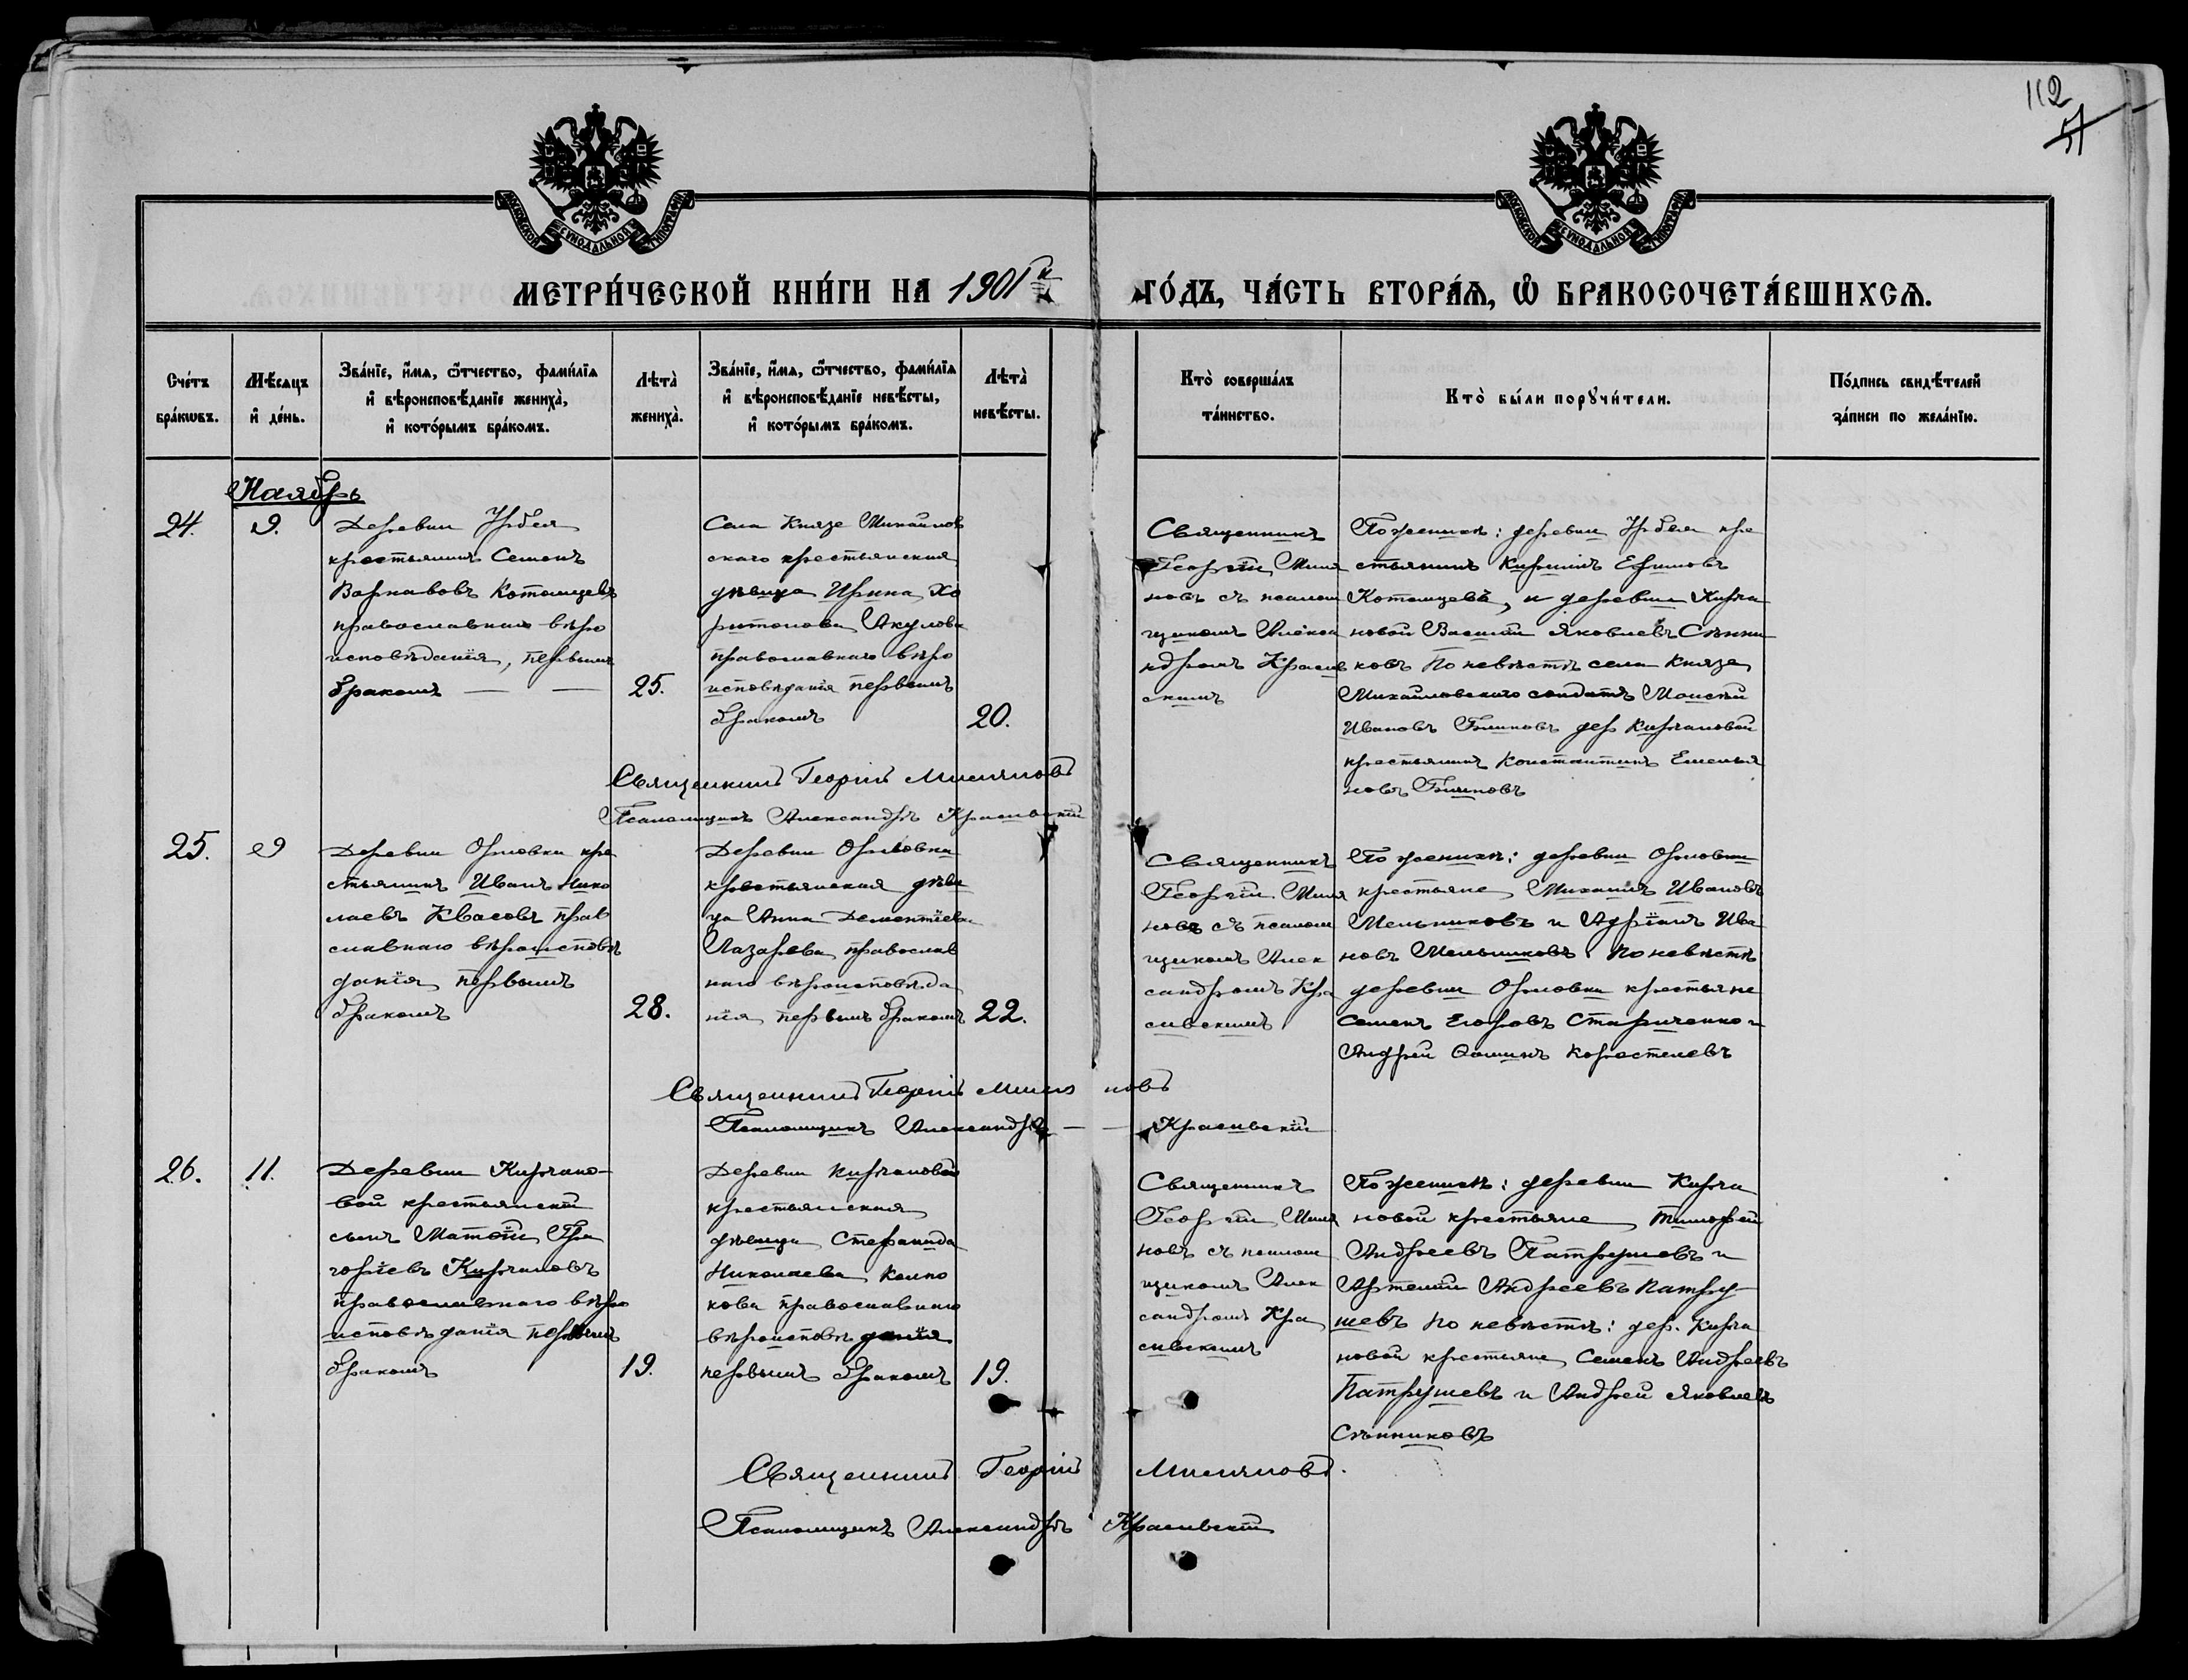 112
57
МОСКОВСКОЙ СѴНОДАЛЬНОЙ ТИПОГРАФІИ
МОСКОВСКОЙ СѴНОДАЛЬНОЙ ТИПОГРАФІИ
МЕТРИ́ЧЕСКОЙ КНИ́ГИ НА 1901й
ГО́ДЪ, ЧА́СТЬ ВТОРА́Ѧ, Ѽ БРАКОСОЧЕТА́ВШИХСѦ.
Сче́тъ бра́кѡвъ.
Мѣ́сяцъ и́ де́нь.
Зва́нїе, и́мѧ, ѿтчество, фами́лїѧ и́ вѣроисповѣ́данїе жениха̀, и́ кото́рымъ бра́комъ.
Лѣта̀ жениха̀.
Зва́нїе, и́мѧ, ѿтчество, фами́лїѧ и́ вѣроисповѣ́данїе невѣ́сты, и́ кото́рымъ бра́комъ.
Лѣта̀ невѣ́сты.
Кто̀ соверша́лъ та́инство.
Кто̀ бы́ли порꙋчи́тели.
По́дпись свидѣ́телей за́писи по жела́нїю.
Ноябрь
24.
9.
Деревни Урбея
крестьянинъ Семенъ
Варнавовъ Котомцевъ
православнаго вѣро
исповѣданія, первымъ
бракомъ — —
25.
Села Князе Михайлов
скаго крестьянская
дѣвица Ирина Ха
ритонова Акулова
православнаго вѣро
исповѣданія первымъ
бракомъ
20.
Священникъ
Георгій Миля
новъ съ псалом
щикомъ Алекса
ндромъ Красив
скимъ
По женихѣ: деревни Урбея кре
стьянинъ Кирилъ Ефимовъ
Котомцевъ, и деревни Кирча
новой Василій Яковлевъ Сѣнни
ковъ По невѣстѣ села Князе
Михайловскаго солдатъ Моисей
Ивановъ Глинковъ дер Кирчановой
крестьянинъ Константинъ Емелья
новъ
Священникъ Георгій Миляновъ
Псаломщикъ Александръ Красивскій
25.
9
Деревни Орловки кре
стьянинъ Иванъ Нико
лаевъ Квасовъ прав
славнаго вѣроисповѣ
данія первымъ
бракомъ
28.
Деревни Орловки
крестьянская дѣви
ца Анна Дементіева
Лазарева православ
наго вѣроисповѣда
нія первымъ бракомъ
22.
Священникъ
Георгій Миля
новъ съ псалом
щикомъ Алек
сандромъ Кра
сивскимъ
По женихѣ: деревни Орловки
крестьяне Михаилъ Ивановъ
Мельниковъ и Адріанъ Ива
новъ Мельниковъ По невѣстѣ
деревни Орловки крестьяне
Семенъ Егоровъ Стариченко и
Андрей Ѳоминъ Коростелевъ
Священникъ Георгій Миляновъ
Псаломщикъ Александръ — — Красивскій
26.
11.
Деревни Кирчано-
вой крестьянскій
сынъ Матѳій Гри
горіевъ Кирчановъ
православнаго вѣро
исповѣданія первымъ
бракомъ
19.
Деревни Кирчановой
крестьянская
дѣвица Стефанида
Николаева Колпо
кова православнаго
вѣроисповѣданія
первымъ бракомъ
19.
Священникъ
Георгій Миля
новъ съ псалом
щикомъ Алек
сандромъ Кра
сивскимъ
По женихѣ: деревни Кирча
новой крестьяне Тимофей
Андреевъ Патрушевъ и
Артемій Андреевъ Патру-
шевъ По невѣстѣ: дер. Кирча
новой крестьяне Семенъ Андреевъ
Патрушевъ и Андрей Яковлевъ
Сѣнниковъ
Священникъ Георгій Миляновъ.
Псаломщикъ Александръ Красивскій